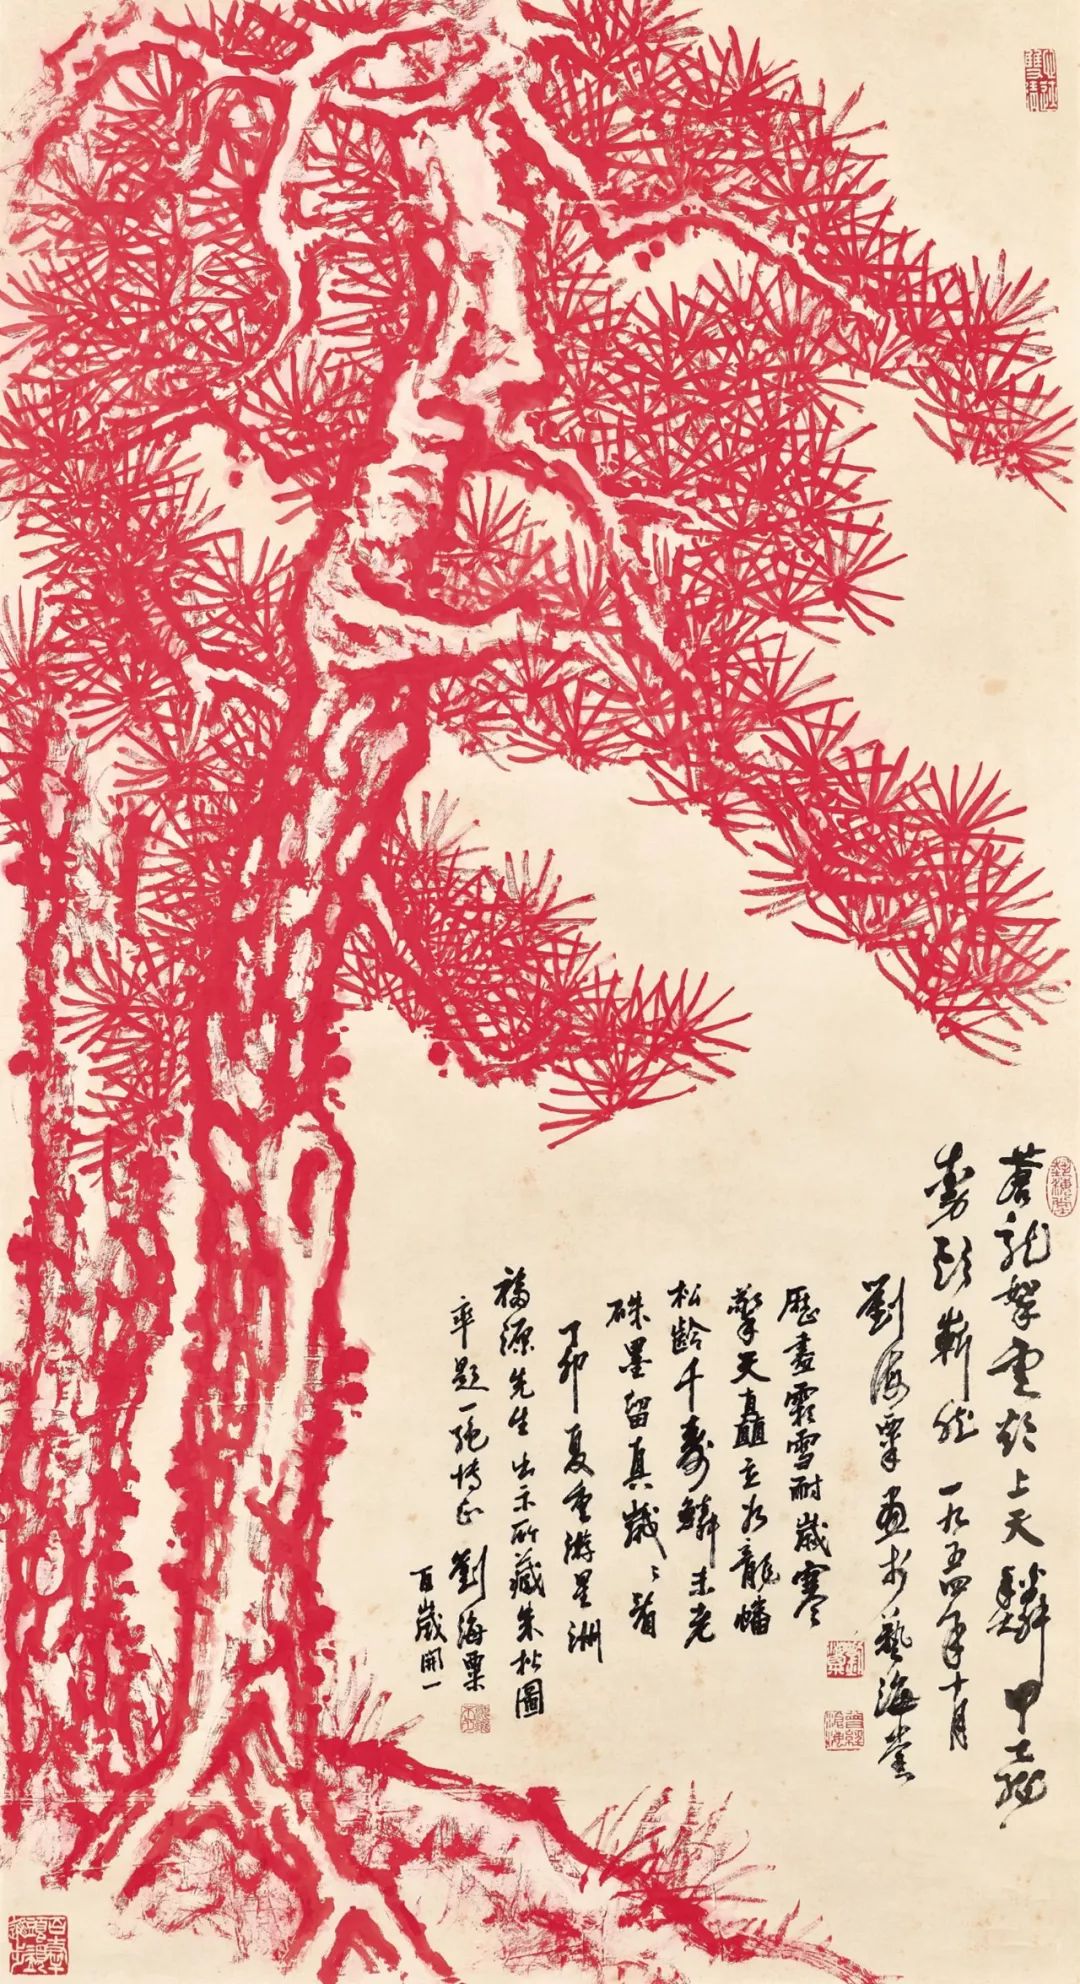 蒼龍拏雲欲上天鱗甲
剪彩嶄然一九五四年十月
劉海粟畫於藝海堂
歷盡霜雪耐歲寒
擎天矗立如龍蟠
松齡千壽鱗未老
硃墨留真歲歲看
丁卯夏重游星洲
福源先生出示所藏朱松圖
率題一絕博正 劉海粟
百歲開一
曾經滄海